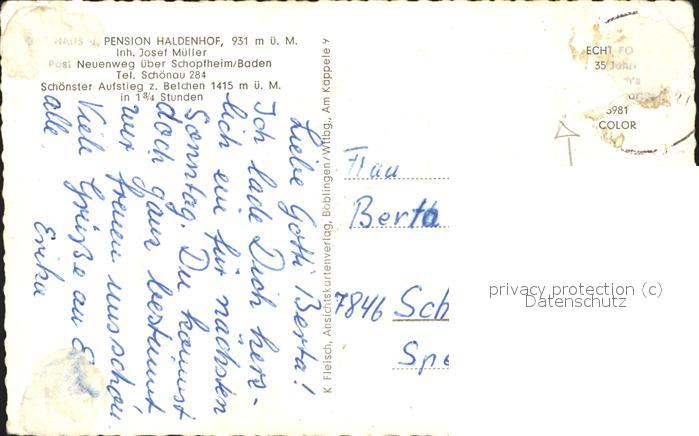 PENSION HALDENHOF, 931 m ü. M.
Inh. Josef Müller
Post Neuenweg über Schopfheim/Baden
Tel. Schönau 284
Schönster Aufstieg z. Belchen 1415 m ü. M.
in 1³/₄ Stunden
Liebe Gotti Berta!
Ich lade Dich herz-
lich ein für nächsten
Sonntag. Du kommst
doch ganz bestimmt
wir freuen uns schon
alle.
Viele Grüße an E
Erika
K. Fleisch, Ansichtskartenverlag, Böblingen/Wttbg., Am Käppele
ECHT FO
35 Jahr
5981
COLOR
Frau
Berta
7846 Sch
Spe
privacy protection (c)
Datenschutz